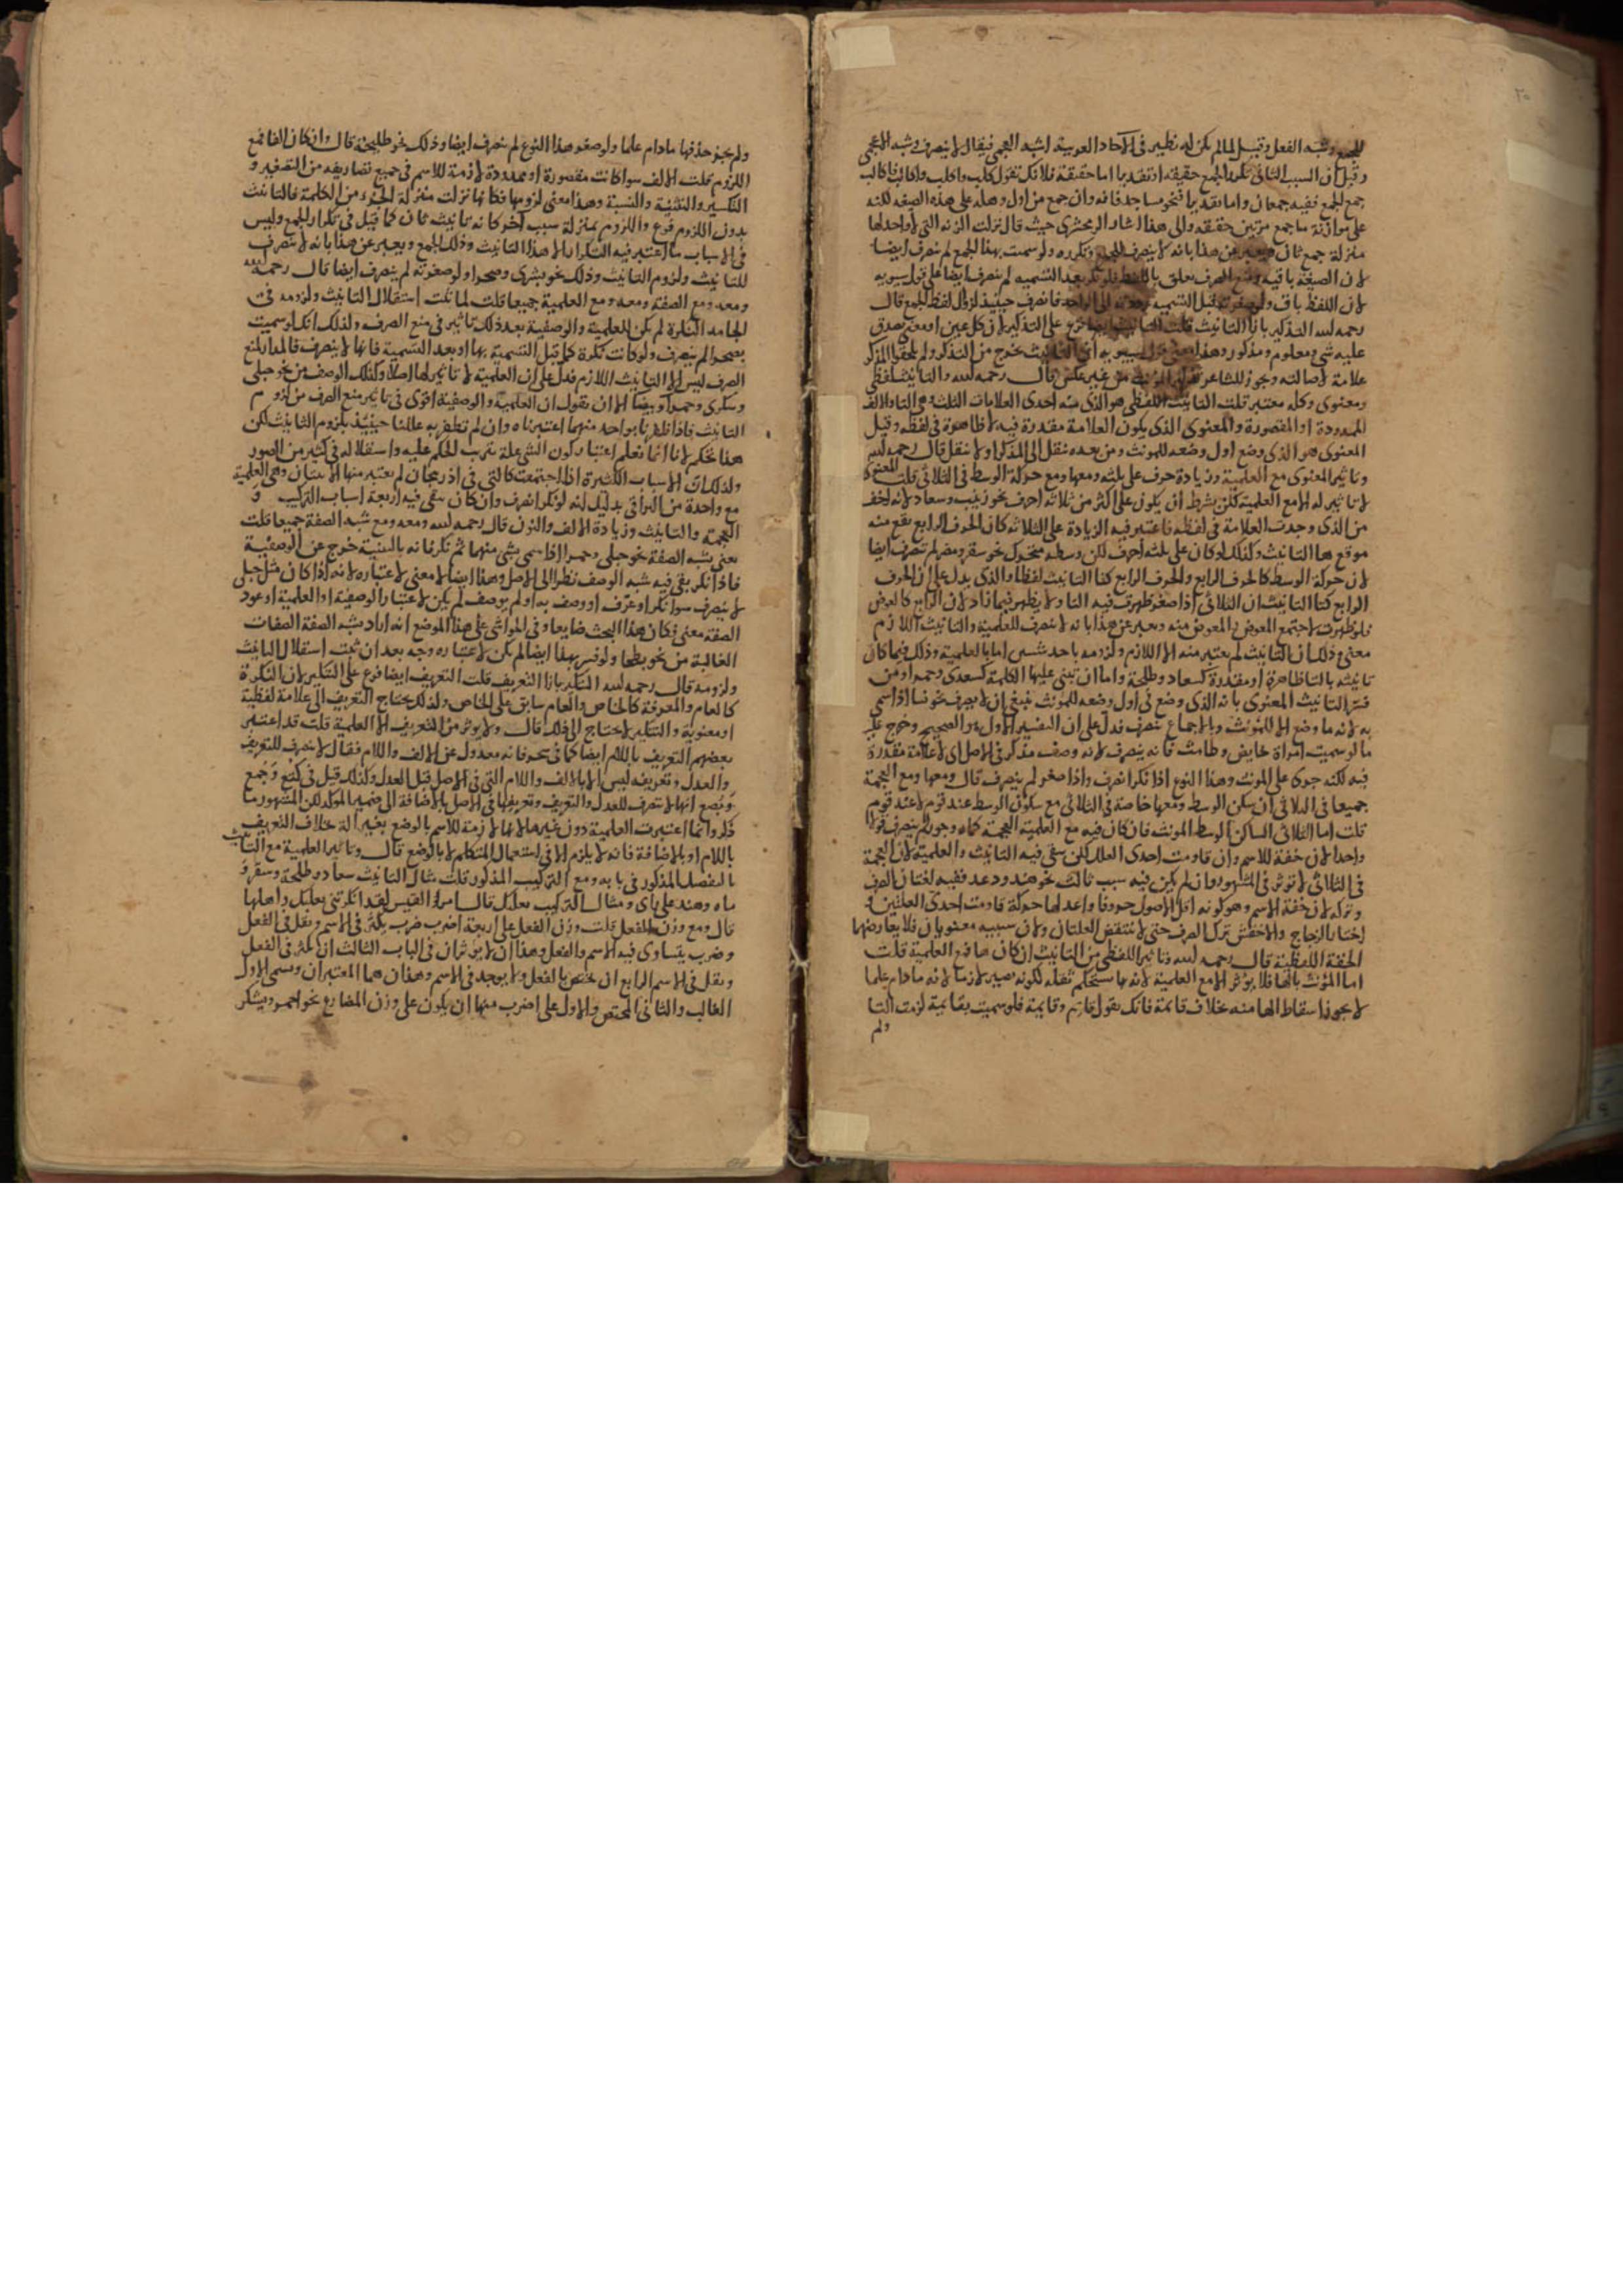 للجمع وشبه الفعل وقيل لما لم يكن له نظير في الآحاد العربية اشبه العجمي فيقال لا ينصرف وشبه الاعجمي
وقيل ان السبب الثاني تكرر الجمع حقيقة او تقديرا اما حقيقة فلانك تقول كلب واكلب واكالب فاكالب
جمع الجمع ففيه جمعان واما تقديرا فنحو مساجد فانه وان جمع من اول وهلة على هذه الصيغة لكنه
على موازنة ما جمع مرتين حقيقة والى هذا اشار الزمخشري حيث قال نزلت الزنة التي لا واحد لها
منزلة جمع ثان ويعبر عن هذا بانه لا ينصرف للجمع وتكرره ولو سميت بهذا الجمع لم ينصرف ايضا
لان الصيغة باقية ومنع الصرف تعلق باللفظ فلو نكر بعد التسمية لم ينصرف ايضا على قول سيبويه
لان اللفظ باق ولو صغرته قبل التسمية رددته الى الواحد فانصرف حينئذ لزوال لفظ الجمع قال
رحمه الله التذكير بازا التانيث قلت التانيث ايضا فرع على التذكير لان كل عين او معنى يصدق
عليه شي ومعلوم ومذكور وهذا معنى قول سيبويه ان التانيث يخرج من التذكير ولم يلحقوا المذكر
علامة لاصالته وجوز للشاعر تذكير المونث من غير عكس قال رحمه الله والتانيث لفظي
ومعنوي وكله معتبر قلت التانيث اللفظي هو الذي فيه احدى العلامات الثلث وهي التا والالف
الممدودة او المقصورة والمعنوي الذي يكون العلامة مقدرة فيه لا ظاهرة في لفظه وقيل
المعنوي هو الذي وضع اول وضعه للمونث ومن بعده نقل الى المذكر او لا ينقل قال رحمه الله
وتاثير المعنوي مع العلمية وزيادة حرف على ثلثه ومعها ومع حركة الوسط في الثلاثي قلت المعنوي
لا تاثير له الا مع العلمية لكن بشرط ان يكون على اكثر من ثلاثة احرف نحو زينب وسعاد لانه اخف
من الذي وجدت العلامة في لفظه فاعتبر فيه الزيادة على الثلاثه كان الحرف الرابع يقع منه
موقع ها التانيث وكذلك لو كان على ثلثه احرف لكن وسطه متحرك نحو سقر ومضر لم ينصرف ايضا
لان حركة الوسط كالحرف الرابع والحرف الرابع كتا التانيث لفظا والذي يدل على ان الحرف
الرابع كتا التانيث ان الثلاثي اذا صغر ظهرت فيه التا ولا يظهر فيما زاد لان الرابع كالعوض
فلو ظهرت لاجتمع العوض والمعوض منه ويعبر عن هذا بانه لا ينصرف للعلمية والتانيث اللازم
معنى وذلك ان التانيث لم يعتبر منه الا اللازم ولزومه باحد شيئين اما بالعلمية وذلك فيما كان
تانيثه بالتا ظاهرة او مقدرة كسعاد وطلحة واما ان تبنى عليها الكلمة كسعدى وحمرا ومن
فسر التانيث المعنوي بانه الذي وضع في اول وضعه للمونث ينبغي ان لا يصرف نحو نسا اذا سمي
به لانه ما وضع الا للمونث وبالاجماع ينصرف فدل على ان التفسير الاول هو الصحيح وخرج عليه
ما لو سميت امراة حايض وطامث فانه ينصرف لانه وصف مذكر في الاصل اي لا علامة مقدرة
فيه لكنه جرى على المونث وهذا النوع اذا نكر انصرف واذا صغر لم ينصرف قال ومعها ومع العجمة
جميعا في الثلاثي ان سكن الوسط ومعها خاصة في الثلاثي مع سكون الوسط عند قوم لا عند قوم
قلت اما الثلاثي الساكن الوسط المونث فان كان فيه مع العلمية العجمة كماه وجور لم ينصرف قولا
واحدا لان خفة الاسم وان قاومت احدى العلل لكن بقي فيه التانيث والعلمية لان العجمة
في الثلاثي لا توثر في المشهور وان لم يكن فيه سبب ثالث نحو هند ودعد ففيه لغتان الصرف
وتركه لان خفة الاسم وهو كونه اقل الاصول حروفا واعدلها حركة قاومت احدى العلتين و
اختار الزجاج والاخفش ترك الصرف حتى لا تنتقض العلتان ولان سببيه معنويان فلا يعارضهما
الخفة اللفظية قال رحمه الله وتاثير اللفظي من التانيث ان كان ها فمع العلمية قلت
اما المونث بالها فلا يوثر الا مع العلمية لانه بها يستحكم ثقله لكونه يصير لازما لانه ما دام علما
لا يجوز اسقاط الها منه بخلاف قايمة فانك تقول قايم وقايمة فلو سميت بقايمة لزمت التا
ولم
ولم يجز حذفها ما دام علما ولو صغر هذا النوع لم ينصرف ايضا وذلك نحو طليحة قال وان كان الفا فمع
اللزوم قلت الالف سوا كانت مقصورة او ممدودة لازمة للاسم في جميع تصاريفه من التصغير و
التكسير والتثنية والنسبة وهذا معنى لزومها فكانها نزلت منزلة الجزء من الكلمة فالتانيث
بدون اللزوم فرع واللزوم بمنزلة سبب آخر كانه تانيث ثان كما قيل في تكرار الجمع وليس
في الاسباب ما اعتبر فيه التكرار الا هذا التانيث وذلك الجمع ويعبر عن هذا بانه لا ينصرف
للتانيث ولزوم التانيث وذلك نحو بشرى وصحرا ولو صغرته لم ينصرف ايضا قال رحمه الله
ومعه ومع الصفة ومعه ومع العلمية جميعا قلت لما ثبت استقلال التانيث ولزومه في
الجامد النكرة لم يكن للعلمية والوصفية بعد ذلك تاثير في منع الصرف ولذلك انك لو سميت
بصحرا لم ينصرف ولو كانت نكرة كما قبل التسمية بها او بعد التسمية فانها لا ينصرف فالمدار لمنع
الصرف ليس الا التانيث اللازم فدل على ان العلمية لا تاثير لها اصلا وكذلك الوصف من نحو حبلى
وسكرى وحمرا وبيضا الا ان نقول ان العلمية والوصفية اقوى في تاثير منع الصرف من لزوم
التانيث فاذا ظفرنا بواحد منهما اعتبرناه وان لم نظفر به عللنا حينئذ بلزوم التانيث لكن
هذا تحكم لانا انما نعلم اعتبار كون الشي علة بترتب الحكم عليه واستقلاله في كثير من الصور
ولذلك ان الاسباب الكثيرة اذا اجتمعت كالتي في اذربيجان لم يعتبر منها الا اثنان وهي العلمية
مع واحدة من البواقي بدليل انه لو نكر انصرف وان كان بقي فيه اربعة اسباب التركيب و
العجمة والتانيث وزيادة الالف والنون قال رحمه الله ومعه ومع شبه الصفة جميعا قلت
يعني بشبه الصفة نحو حبلى وحمرا اذا سمي بشي منهما ثم نكر فانه بالتسمية خرج عن الوصفية
فاذا نكر بقي فيه شبه الوصف نظرا الى الاصل وهذا ايضا لا معنى لاعتباره لانه اذا كان مثل حبلى
لا ينصرف سوا نكر او عرف او وصف به او لم يوصف لم يكن لاعتبار الوصفية او العلمية او عود
الصفة معنى فكان هذا البحث ضايعا وفي الحواشي على هذا الموضع انه اراد بشبه الصفة الصفات
الغالبة من نحو بطحا ولو فسر بهذا ايضا لم يكن لاعتباره وجه بعد ان ثبت استقلال التانيث
ولزومه قال رحمه الله التنكير بازا التعريف قلت التعريف ايضا فرع على التنكير لان النكرة
كالعام والمعرفة كالخاص والعام سابق على الخاص ولذلك يحتاج التعريف الى علامة لفظية
او معنوية والتنكير لا يحتاج الى ذلك قال ولا يوثر من التعريف الا العلمية قلت قد اعتبر
بعضهم التعريف باللام ايضا كما في سحر فانه معدول عن الالف واللام فقال لا ينصرف للتعريف
والعدل وتعريفه ليس الا بالالف واللام التي في الاصل قبل العدل وكذلك قيل في كتع وجمع
وبصع انها لا تنصرف للعدل والتعريف وتعريفها في الاصل بالاضافة الى ضمير الموكد لكن المشهور ما
ذكر وانما اعتبرت العلمية دون غيرها لانها لازمة للاسم بالوضع بغير آلة خلاف التعريف
باللام او بالاضافة فانه لا يلزم الا في استعمال المتكلم لا بالوضع قال وتاثير العلمية مع التانيث
بالتفصيل المذكور في بابه ومع التركيب المذكور قلت مثال التانيث سعاد وطلحة وسقر و
ماه وهند على راي ومثال التركيب بعلبك قال امرؤ القيس لقد انكرتني بعلبك واهلها
قال ومع وزن الفعل قلت وزن الفعل على اربعة اضرب ضرب يكثر في الاسم ويقل في الفعل
وضرب يتساوى فيه الاسم والفعل وهذان لا يوثران في الباب الثالث ان يكثر في الفعل
ويقل في الاسم الرابع ان يختص بالفعل ولا يوجد في الاسم وهذان هما المعتبران ويسمى الاول
الغالب والثاني المختص والاول على اضرب منها ان يكون على وزن المضارع نحو احمر ويشكر